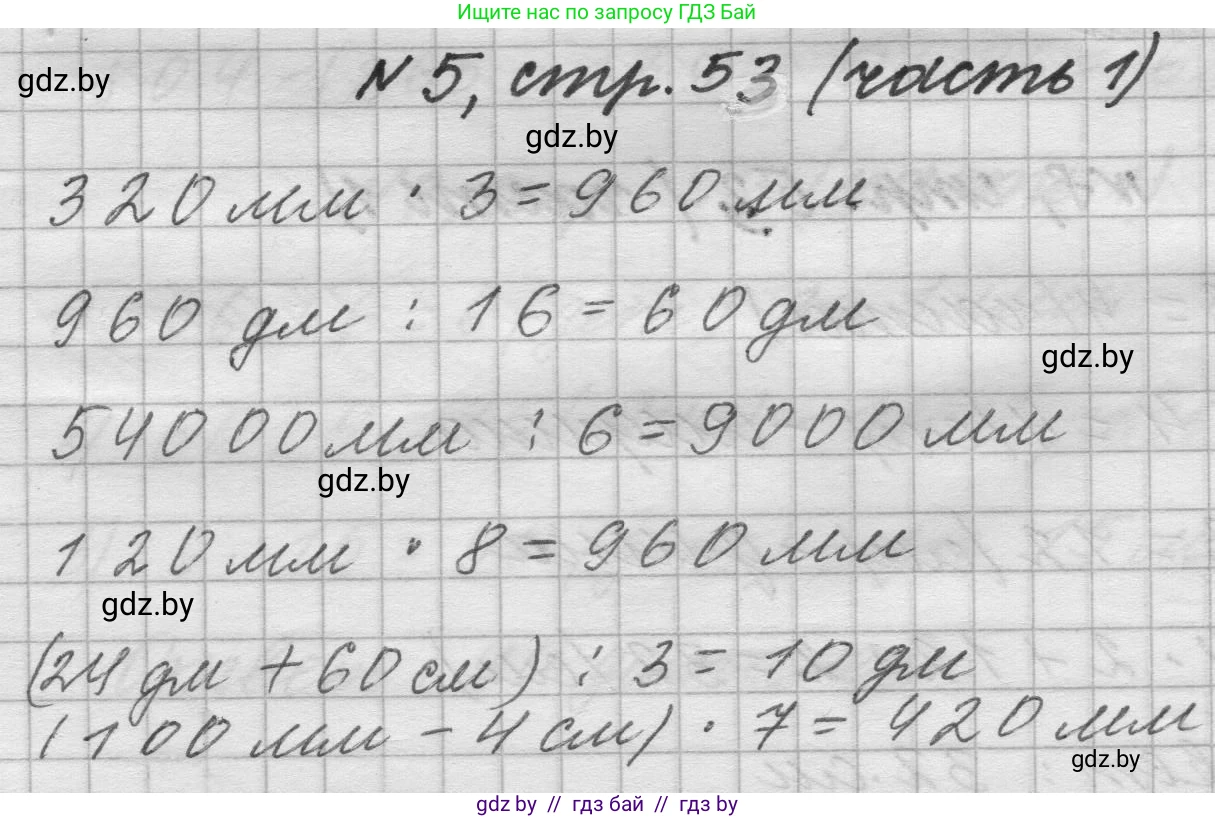 Ищите нас по запросу ГДЗ Бай
gdz.by
N 5, стр. 53 (часть 1)
gdz.by
320 мм · 3 = 960 мм
960 дм : 16 = 60 дм
gdz.by
54000 мм : 6 = 9000 мм
gdz.by
120 мм · 8 = 960 мм
gdz.by
(24 дм + 60 см) : 3 = 10 дм
(100 мм - 4 см) · 7 = 420 мм
gdz.by
gdz by // гдз бай // гдз by